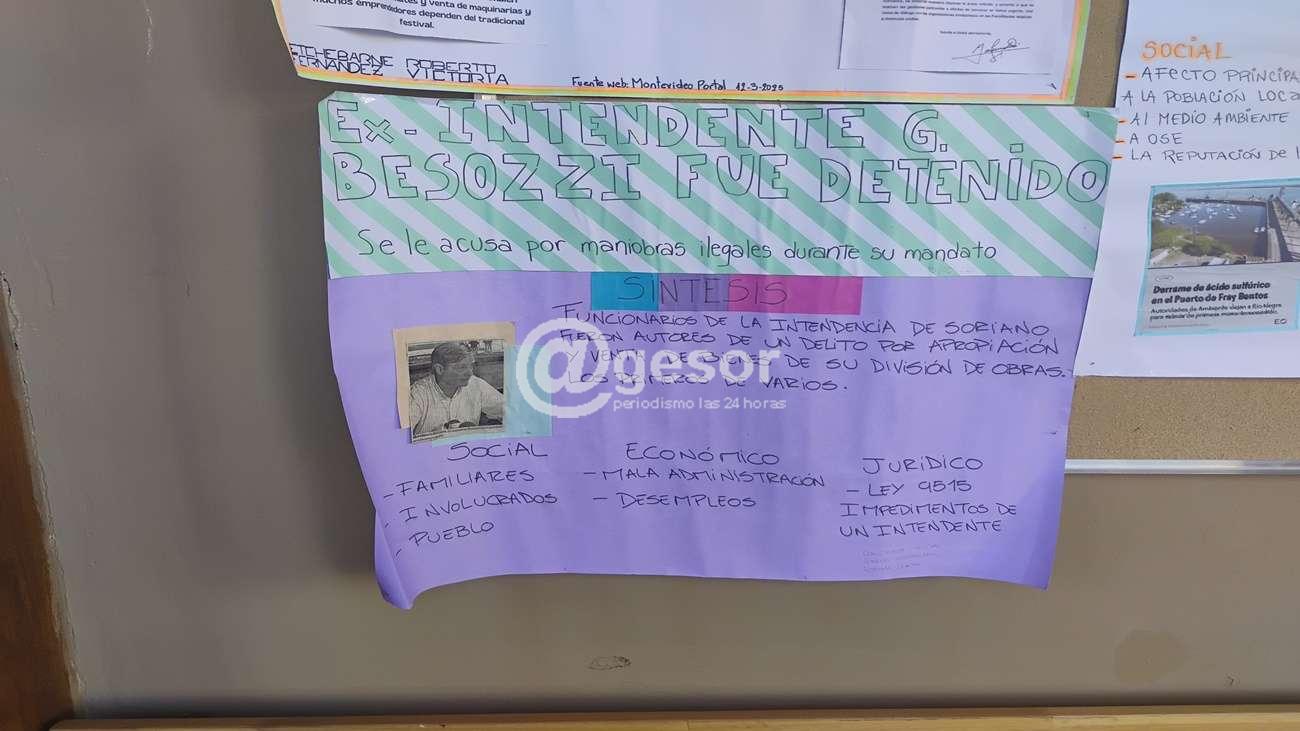 muchos emprendedores dependen del tradicional
festival.
ETCHEBARNE ROBERTO
FERNANDEZ VICTORIA
Fuente web: Montevideo Portal 12-3-2025
EX-INTENDENTE G.
BESOZZI FUE DETENIDO
Se le acusa por maniobras ilegales durante su mandato
SÍNTESIS
FUNCIONARIOS DE LA INTENDENCIA DE SORIANO
FUERON AUTORES DE UN DELITO POR APROPIACIÓN
Y VENTA DE BIENES DE SU DIVISIÓN DE OBRAS.
LOS PRIMEROS DE VARIOS.
@gesor
periodismo las 24 horas
SOCIAL
- FAMILIARES
- INVOLUCRADOS
- PUEBLO
ECONÓMICO
- MALA ADMINISTRACIÓN
- DESEMPLEOS
JURÍDICO
- LEY 9515
IMPEDIMENTOS DE
UN INTENDENTE
SOCIAL
- AFECTO
A LA POBLACIÓN
- Al MEDIO AMBIENTE
- A OSE
- LA REPUTACIÓN DE
Derrame de ácido sulfúrico
en el Puerto de Fray Bentos